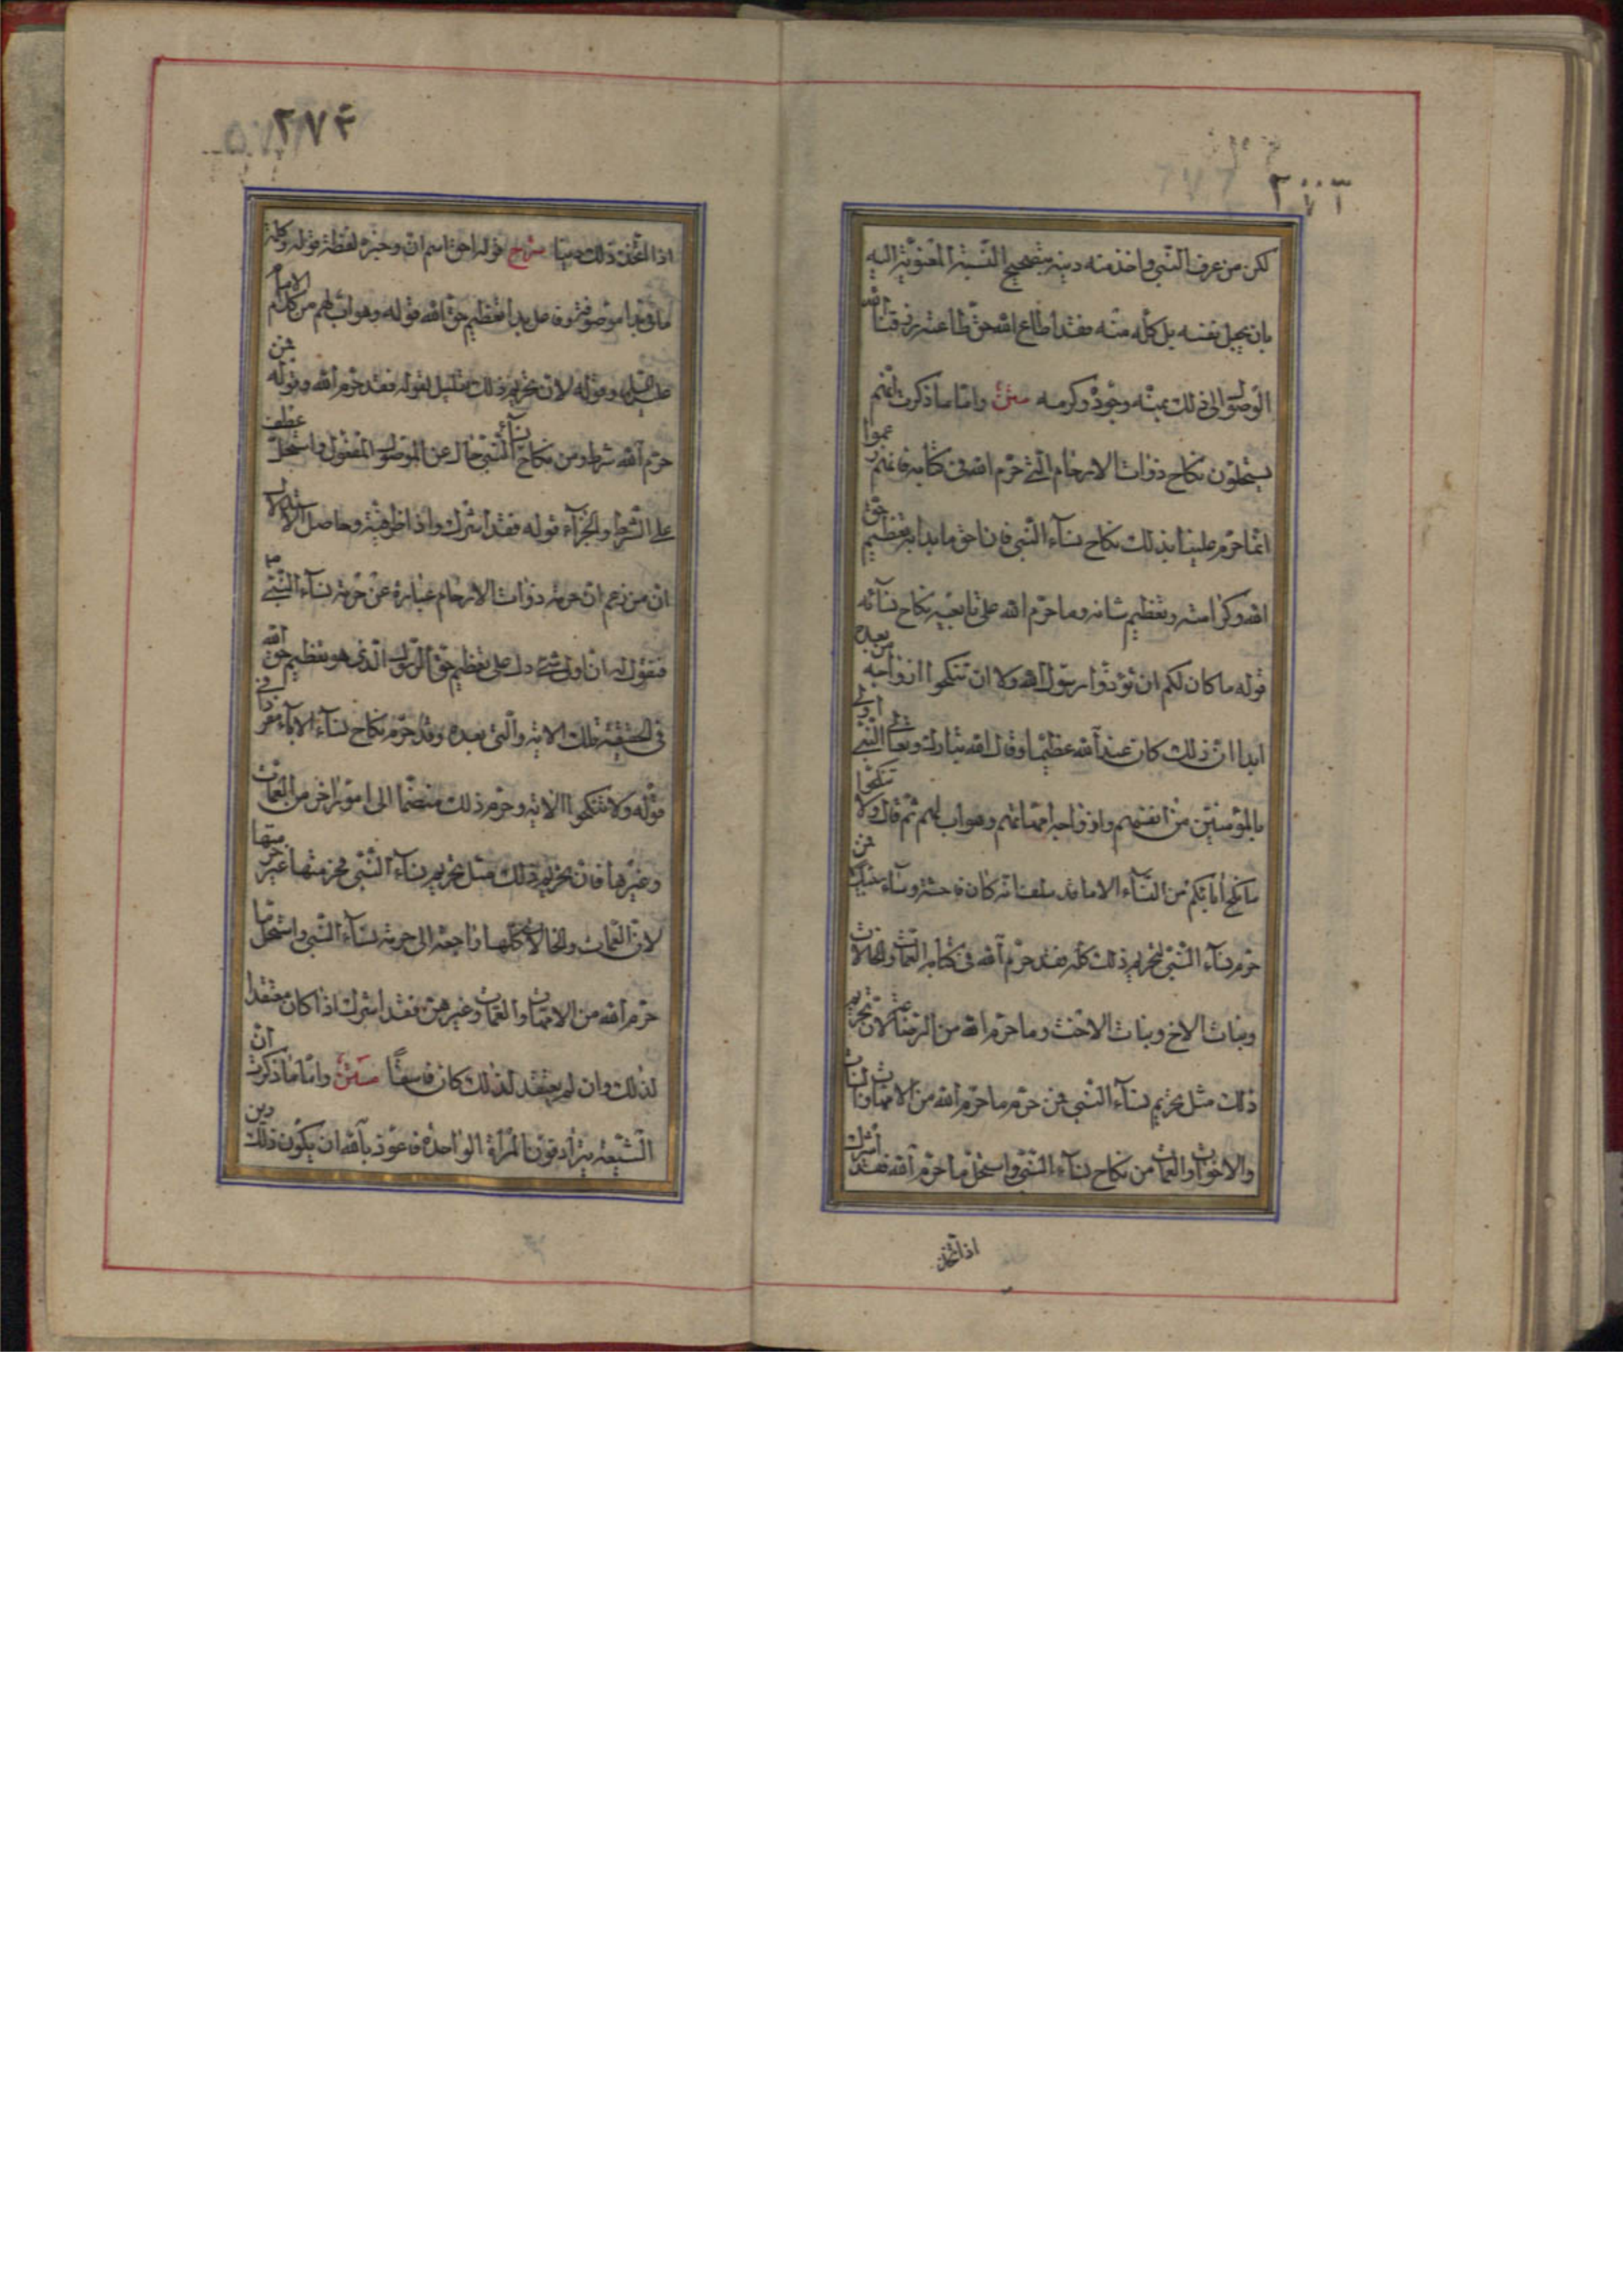 ٢٧٣
لكن من عرف النبي و اخذ منه دينه بتصحيح النسبة المعنوية اليه
بان يجعل نفسه بل كله منه فقد اطاع الله حق طاعته رزقنا الله
الوصول الى ذلك بمنه وجوده وكرمه متن واما ما ذكرت انهم
يستحلون نكاح ذوات الارحام التي حرم الله في كتابه فانهم زعموا
انما حرم علينا بذلك نكاح نسآء النبي فان احق ما بدأ به تعظيم حق
الله وكرامته وتعظيم شانه وما حرم الله على تابعيه نكاح نسآئه
قوله ما كان لكم ان تؤذوا رسول الله ولا ان تنكحوا ازواجه من بعده
ابدا ان ذلك كان عند الله عظيما وقال الله تبارك وتعالى النبي اولى
بالمؤمنين من انفسهم وازواجه امهاتهم وهو اب لهم ثم قال ولا تنكحوا
ما نكح اباؤكم من النسآء الا ما قد سلف انه كان فاحشة وسآء سبيلا فمن
حرم نسآء النبي لتحريم ذلك كله فقد حرم الله في كتابه العمات والخالات
وبنات الاخ وبنات الاخت وما حرم الله من الرضاعة لان تحريم
ذلك مثل تحريم نسآء النبي فمن حرم ما حرم الله من الامهات والبنات
والاخوات والعمات من نكاح نسآء النبي واستحل ما حرم الله فقد اشرك
اذا اتخذ
٢٧٤
اذا اتخذ ذلك دينا شرح قوله احق اسم ان وخبره لفظة قوله وكلمة
ما في ما بدا موصوفة وفاعل بدا تعظيم حق الله قوله وهو اب لهم من كلام الامام
وقوله لان تحريم ذلك تعليل لقوله فقد حرم الله وقوله فمن
حرم الله شرط ومن نكاح نسآء النبي حال عن الموصول المفعول واستحل عطف
على الشرط والجزآء قوله فقد اشرك واذا ظرفية وحاصل الاستدلال
ان من زعم ان حرمة ذوات الارحام عبارة عن حرمة نسآء النبي ص
فنقول له ان اول شئ دل على تعظيم حق الرسول الذي هو تعظيم حق الله
في الحقيقة تلك الاية والتي بعده وقد حرم نكاح نسآء الاباء مقرنا في
قوله ولا تنكحوا الاية وحرم ذلك منضما الى امور اخر من العمات
وغيرها فان تحريم ذلك مثل تحريم نسآء النبي فحرمتها عين حرمتها
لان العمات والخالات كلها راجعة الى حرمة نسآء النبي واستحل ما
حرم الله من الامهات والعمات وغيرهن فقد اشرك اذا كان معتقدا
لذلك وان لم يعتقد لذلك كان فاسقا متن واما ما ذكرت ان
الشيعة يترادفون المرأة الواحدة فاعوذ بالله ان يكون ذلك دين